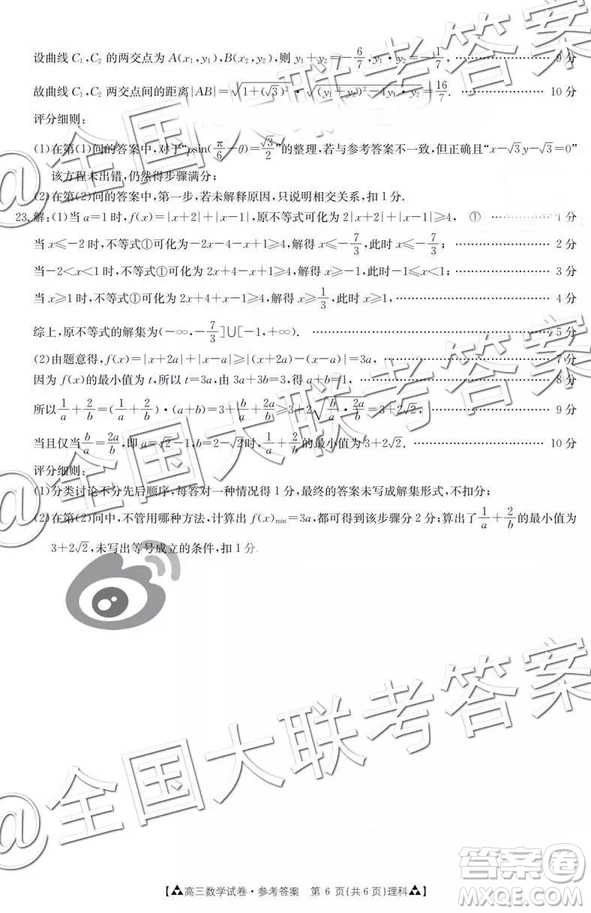 设曲线 C₁,C₂ 的两交点为 A(x₁,y₁),B(x₂,y₂),则 y₁+y₂=-6/7,y₁·y₂=-1/7. 9 分
故曲线 C₁,C₂ 两交点间的距离|AB|=√(1+(√3)²)·√((y₁+y₂)²-4y₁·y₂)=16/7. 10 分
评分细则:
(1)在第(1)问的答案中,对于“ρsin(π/6-θ)=√3/2”的整理,若与参考答案不一致,但可以整理成“x-√3y-√3=0”
该方程未出错,仍然得步骤满分;
(2)在第(1)问的答案中,第一步,若未解释原因,只说明相交关系,扣 1 分.
23.解:(1)当 a=1 时,f(x)=|x+2|+|x-1|,故不等式可化为 2|x+2|+|x-1|≥4, ① 1 分
当 x≤-2 时,不等式①可化为-2x-4-x+1≥4,解得 x≤-7/3,此时 x≤-7/3; 2 分
当-2<x<1 时,不等式①可化为 2x+4-x+1≥4,解得 x≥-1,此时-1≤x<1; 3 分
当 x≥1 时,不等式①可化为 2x+4+x-1≥4,解得 x≥1/3,此时 x≥1. 4 分
综上,原不等式的解集为(-∞,-7/3]∪[-1,+∞). 5 分
(2)由题意得,f(x)=|x+2a|+|x-a|≥|(x+2a)-(x-a)|=3a. 7 分
因为 f(x)的最小值为 t,所以 t=3a,由 3a+3b=3,得 a+b=1. 8 分
所以1/a+2/b=(1/a+2/b)·(a+b)=3+b/a+2a/b≥3+2√(b/a·2a/b)=3+2√2. 9 分
当且仅当b/a=2a/b,即 a=√2-1,b=2-√2时,1/a+2/b的最小值为 3+2√2. 10 分
评分细则:
(1)分类讨论不分先后顺序,每答对一种情况得 1 分,最终的答案未写成解集形式,不扣分;
(2)在第(2)问中,不管用哪种方法,计算出 f(x)min=3a,都可以得到该步骤分 2 分;算出了1/a+2/b的最小值为
3+2√2,未写出等号成立的条件,扣 1 分.
@全国大联考答案
@全国大联考答案
【高三数学试卷·参考答案 第 6 页(共 6 页)理科】
答案圈
MXQE.COM